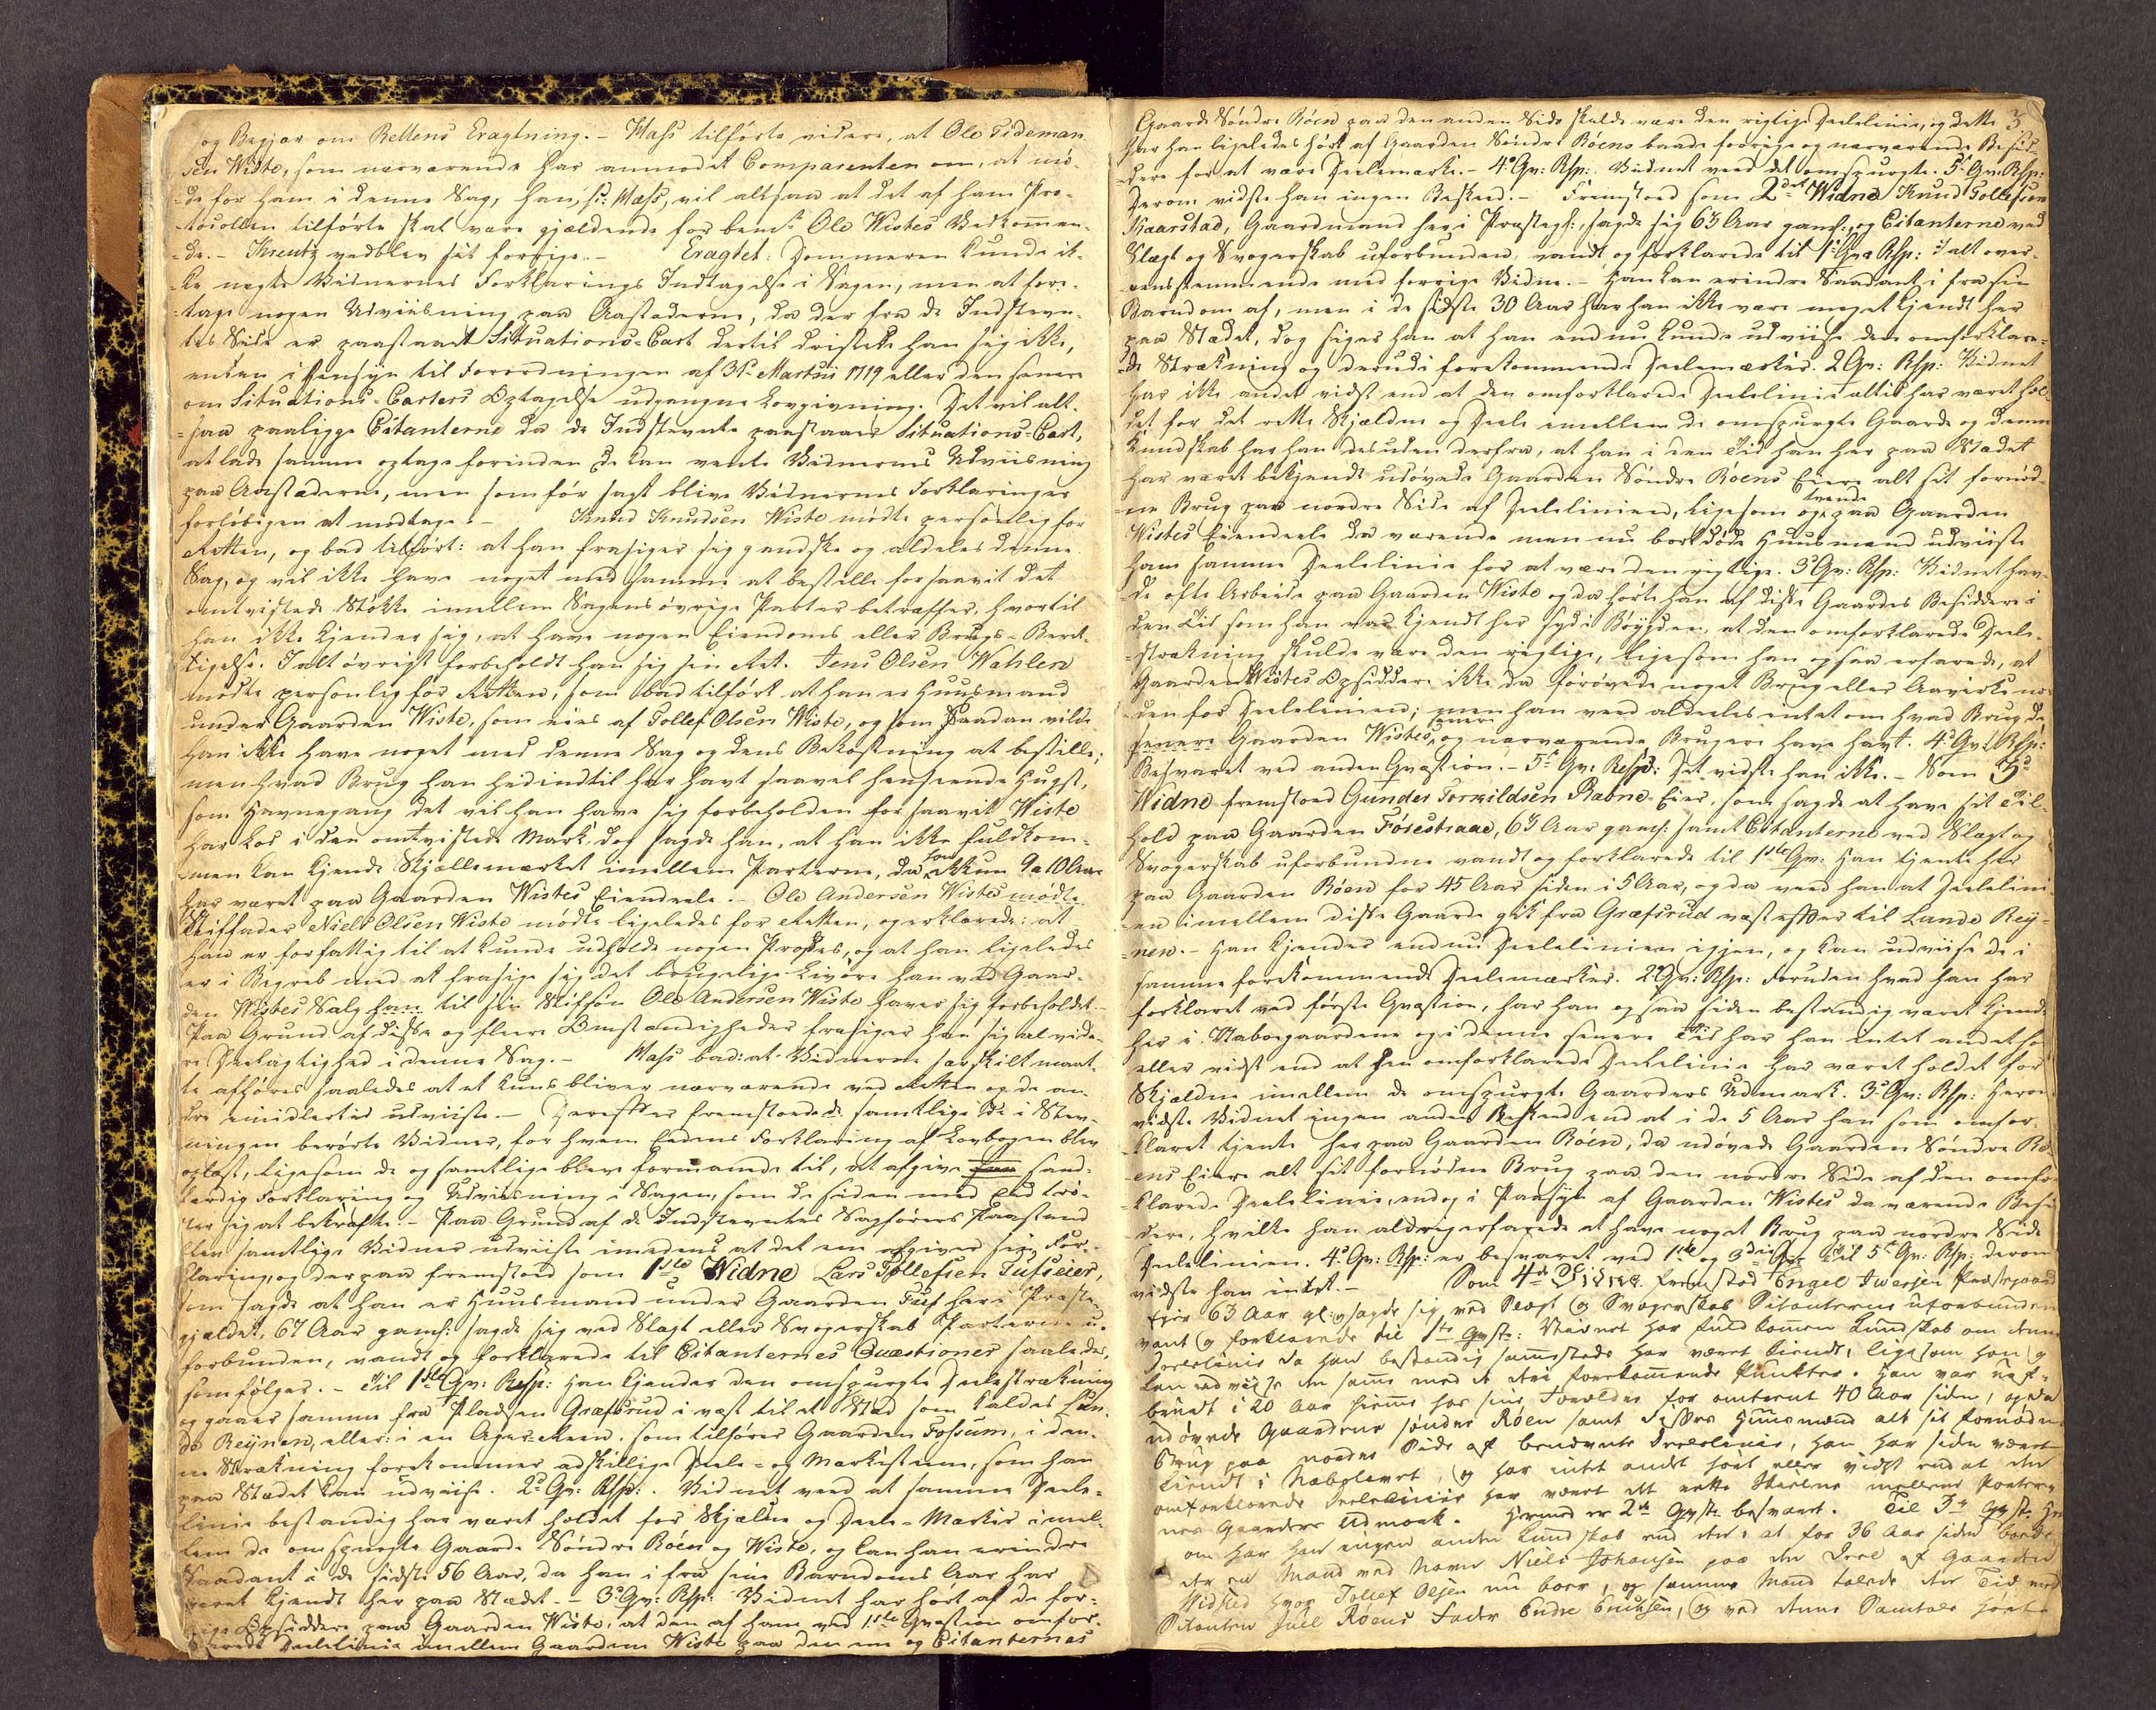 og Begjær om Rettens Eragtning. – Mass tilførte videre, at Ole Tideman
sen Wiste, som nærværende har anmodet Comparenten om, at mø-
-de for ham i denne Sag, han, sr: Mass, vil altsaa at det af ham Pro-
-tocollen tilførte skal være gjældende for bemte Ole Wistes Vedkommen-
-de. – Kreutz vedblev sit forrige. – Eragtet: Dommeren kunde ik-
-ke negte Vidnernes Forklarings Indtagelse i Sagen, men at fore-
-tage nogen Udviisning paa Aastæderne, da der fra de Indstevn-
tes Side er paastaaet Situations-Cart dertil dristede han sig ikke,
enten i Hensyn til Forordningen af 31te Martii 1719 eller den senere
om Situations-Carters Optagelse udgangne Lovgivning. Det vil alt-
-saa paaligge Citanterne da de Indstevnte paastaaer Situations-Cart,
at lade samme optage forinden de kan vente Vidnernes Udviisning
paa Aastæderne, men som før sagt blive Vidnernes Forklaringer
forløbigen at modtage. – Knud Knudsen Wiste mødte personlig for
Retten, og bad tilført: at han frasiger sig gandske og aldeles denne
Sag, og vil ikke have noget med samme at bestille forsaavit det
omtvistede Støkke imellem Sagens øvrige Parter betræffer, hvortil
han ikke kjender sig, at have nogen Eiendoms eller Brugs-Beret-
tigelse. I alt øvrigt forbeholdt han sig sin Ret. Jens Olsen Wahlen
mødte personlig for Retten, som bad tilført at han er Huusmand
under Gaarden Wiste, som eies af Tollef Olsen Wiste, og som saadan vilde
han ikke have noget med denne Sag og dens Bekostning at bestille;
men hvad Brug han hedindtil har havt saavel henseende Hugst,
som Havnegang det vil han have sig forbeholden forsaavit Wiste
har Lod i den omtvistede Mark, dog sagde han, at han ikke fuldkom-
-men kan kjende Skjællemærket imellem Parterne, da han ikkun 9 a 10 Aar
har været paa Gaarden Wistes Eiendeele. – Ole Andersen Wistes mødte
Stiffader Niels Olsen Wiste mødte ligeledes for Retten, og erklærede: at
han er for fattig til at kunde udholde nogen Proces, og at han ligeledes
er i Begreb med at frasige sig det brugelige Livøre han ved Gaar-
den Wistes Salg til sin Stifsøn Ole Andersen Wiste haver sig forbeholdet.
Paa Grund af disse og fleere Omstændigheder frasiger han sig al vide-
re Deelagtighed i denne Sag. – Mass bad: at Vidnerne særskilt maat-
te afhøres saaledes at et kuns bliver nærværende ved Retten og de an-
dre imidlertid udviiste. – Derefter fremstoede de samtlige de i Stev-
ningen berørte Vidner, for hvem Eedens Forklaring af Lovbogen blev
oplæst, ligesom de og samtlige bleve formanede til, at afgive sand-
færdig Forklaring og Udviisning i Sagen, som de siden med Eed trø-
ster sig at bekræfte. – Paa Grund af de Indstevntes Sagførers Paastand
blev samtlige Vidner udviiste imedens at det ene afgiver sin For-
klaring, og derpaa fremstoed som 1ste Widne Lars Tollefsen Tufseier,
som sagde at han er Huusmand under Gaarden Tuf her i Præste-
gjældet, 67 Aar gaml: sagde sig ved Slægt eller Svogerskab Parterne u-
forbunden, vandt og forklarede til Citanternes Quæstioner saaledes,
som følger. – Til 1ste Qv: Resp: Han kjender den omspurgte Deelestrækning
og gaaer samme fra Pladsen Græfsrud i væst til et Stæd som kaldes Lan-
de Reynen, eller: i en Ager-Reen som tilhører Gaarden Fossum, i den-
ne Strækning forekommer adskillige Deele- og Markesteene, som han
paa Stædet kan udviise. 2d Qv: Rsp: Vidnet veed at samme Deele-
linie bestandig har været holdet for Skjællne og Deele-Mærker imel-
lem de omspurgte Gaarde Søndre Röen og Wiste, og kan han erindre
Saadant i de sidste 56 Aar, da han i fra sine Barndoms Aar har
været kjendt her paa Stædet. – 3d Qv: Rsp: Vidnet har hørt af de for-
rige Opsiddere paa Gaarden Wiste, at den af ham ved 1ste Qvæstion omfor-
klarede Deelelinie imellem Gaarden Wiste paa den ene og Citanternes
3
Gaard Søndre Röen paa den anden Side skulde være den rigtige Deelelinie, og dette
har han ligeledes hørt af Gaarden Søndre Röens baade forrige og nærværende Besid-
-dere for at være Deelemærke. – 4d Qv: Rsp: Vidnet veed det omspurgte. 5te Qv: Rsp:
Derom vidste han ingen Besked. – Fremstoed som 2det Widne Knud Tollefsen
Kaarstad, Gaardmand her i Præstegl:, sagde sig 63 Aar gaml:, og Citanterne ved
Slægt og Svogerskab uforbunden, vandt og forklarede til 1ste Qvæ Rsp: I alt over-
-eensstemmende med forrige Vidne. – Han kan erindre Saadant i fra sin
Barndom af, men i de sidste 30 Aar har han ikke være meget kjendt her
paa Stædet, dog siger han at han endnu kunde udviise den omforklare-
-de Strækning og derudi forekommende Deelemærker. 2 Qv: Rsp: Vidnet
har ikke andet vidst end at den omforklarede Deelelinie altid har været hol-
det for det rette Skjælden og Deele imellem de omspurgte Gaarde og denne
Kundskab har han desuden derfra, at han i den Tid han her paa Stædet
har været bekjendt udøvede Gaarden Søndre Röens Eiere alt sit fornød-
-ne Brug paa nordre Side af Deelelinien, ligesom og tvende paa Gaarden
Wistes Eiendeele da værende men nu bortdøde Huusmænd udviiste
ham samme Deelelinie for at være den rigtige. 3d Qv: Rsp: Vidnet hav-
-de ofte Arbeide paa Gaarden Wiste og da hørte han af disse Gaardes Besiddere i
den Tid som han var kjendt her syd i Böygden, at den omforklarede Deele-
-strækning skulde være den rigtige, ligesom han ogsaa erfarede, at
Gaarden Wistes Opsiddere ikke da forøvede noget Brug eller Aavirke nor-
den for Deelelinien; men han veed aldeeles intet om hvad Brug de
senere Gaarden Wistes senere og nærværende Brugere have havt. 4d Qv: Rsp:
Besvaret ved anden Qvæstion. – 5te Qv: Resp: Det vidste han ikke. – Som 3d
Widne fremstoed Gunder Torkildsen Rabne-Eier, som sagde at have sit Til-
hold paa Gaarden Fosestraae, 63 Aar gaml: samt Citanterne ved Slægt og
Svogerskab uforbunden vandt og forklarede til 1ste Qv: Han tjente her
paa Gaarden Röen for 45 Aar siden i 5 Aar, og da veed han at Deelelini-
-en imellem disse Gaarde gik fra Græfsrud væst efter til Lande Rey-
-nen. – Han kjender endnu Deelelinien igjen, og kan udviise de i
samme forekommende Deelemærker. 2d Qv: Rsp: Foruden hvad han har
forklaret ved første Qvæstion, har han ogsaa siden bestandig været kjendt
her i Nabogaardene og i denne senere Tid har han intet andet hört
eller vidst end at den omforklarede Deelelinie har været holdet for
Skjældne imellem de omspurgte Gaarders Udmark. 3d Qv: Rsp: Herom
vidste Vidnet ingen anden Besked end at i de 5 Aar han som omfor-
klaret tjente her paa Gaarden Röen, da udøvede Gaarden Søndre Rö-
-ens Eiere alt sit fornødne Brug paa den nordre Side af den omfor-
klarede Deelelinie, endog i Paasyn af Gaarden Wistes da værende Besid-
dere, hvilke han aldrig erfarede at have noget Brug paa nordre Side
Deelelinien. 4d Qv: Rsp: er besvaret ved 1ste og 3die Qv: Til 5te Qv: Rsp: derom
vidste han intet. – Som 4de Vidne fremstod Engel Iversen Præstegaard
Eier 63 Aar gl: og sagde sig ved Slægt og Svogerskab Citanterne uforbunden
vant og forklarede til 1ste Qvst: Vidnet har fuldkommen Kundskab om denne
Deelelinie da han bestandig samestæds har været kiendt, ligesom han og
kan udviise den samme med de deri forekommende Punkter. Han var nest-
bendt i 20 Aar hiemme hos sine Foreldre for omtrent 40 Aar siden, og da
udøvede Gaardens søndre Roen samt disses Huusmænd alt sit fornødne
Brug paa nordre Side af benævnte Deelelinie, han har siden været
kiendt i Nabolavet, og har intet andet hørt eller vidst end at den
omforklarede Deelelinie har været det rette Skielne mellem Parter-
nes Gaarders Udmark. Hermed er 2de Qvstn besvaret. Til 3de Qvstn Her-
om har han ingen anden Kundskab end den: at for 36 Aar siden boede
der en Mand ved Navn Niels Johansen paa den Deel af Gaarden
Widsted hvor Tollef Olsen nu boer, og samme Mand talede den Tid med
Citanten Juel Roens Fader Endre Erichsen, og ved denne Samtale hørte